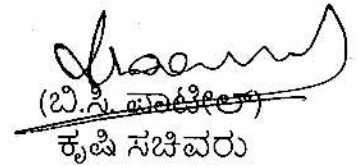 (ಬಿ.ಸಿ. ಪಾಟೀಲ್)
ಕೃಷಿ ಸಚಿವರು